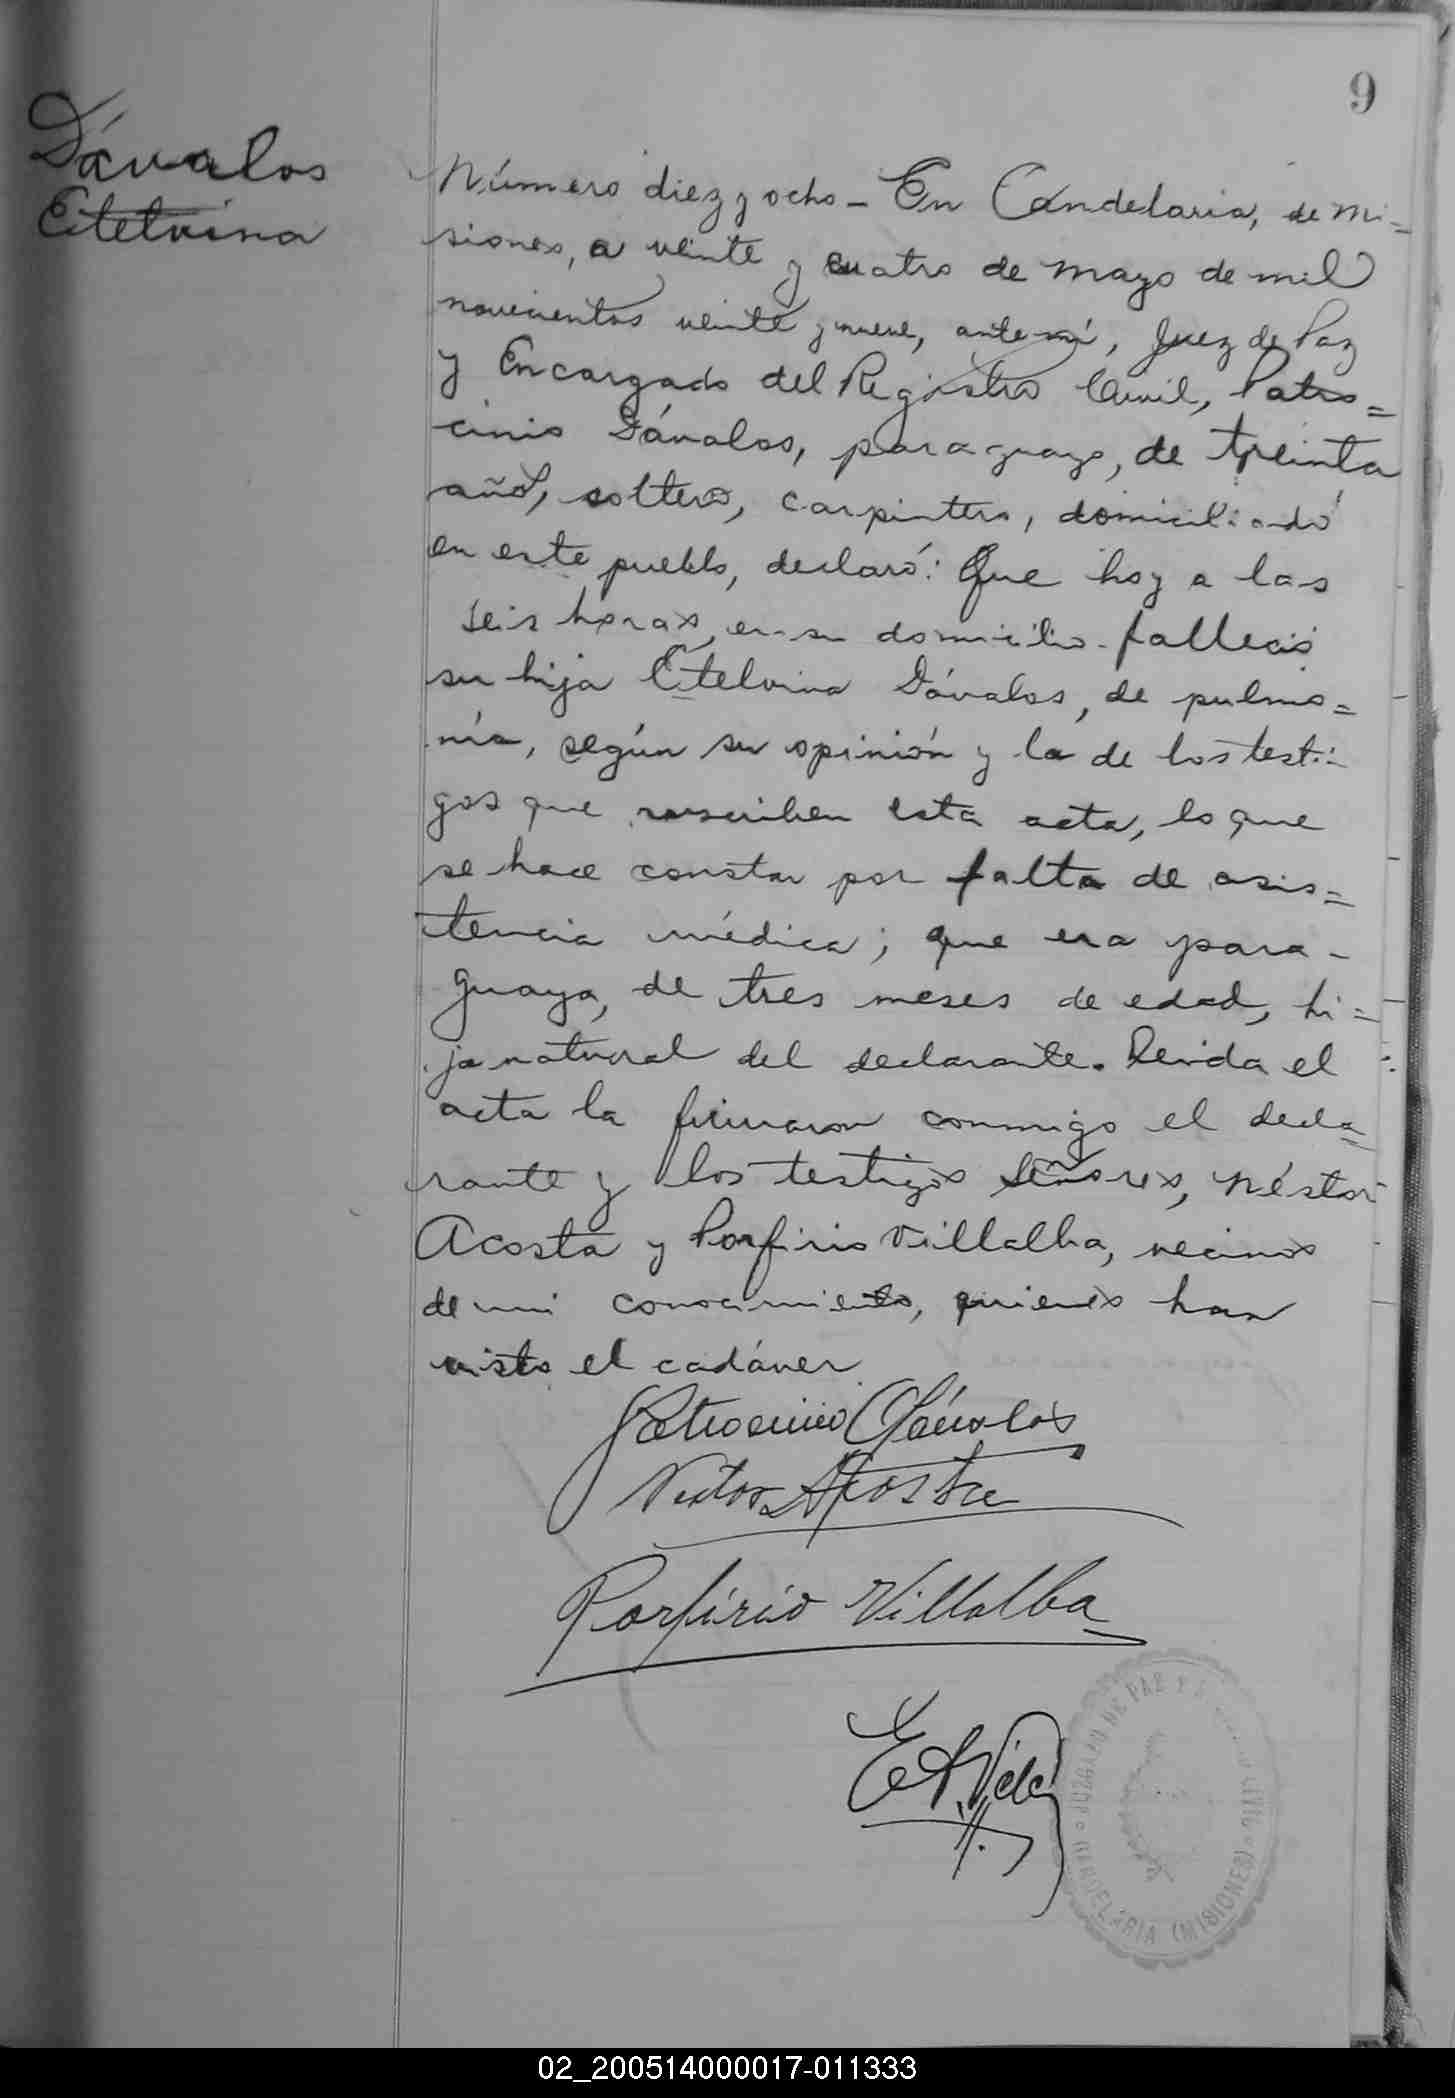 9
Dávalos
Etelvina
Número diez y ocho - En Candelaria, de Mi=
siones, a veinte y cuatro de Mayo de mil
novecientos veinte y nueve, ante mí, Juez de Paz
y Encargado del Registro Civil, Patro=
cinio Dávalos, paraguayo, de treinta
años, soltero, carpintero, domiciliado
en este pueblo, declaró: Que hoy a las
seis horas, en su domicilio falleció
su hija Etelvina Dávalos, de pulmo=
nía, según su opinión y la de los testi-
gos que suscriben esta acta, lo que
se hace constar por falta de asis=
tencia médica; que era para-
guaya, de tres meses de edad, hi=
ja natural del declarante. Leída el
acta la firmaron conmigo el decla=
rante y los testigos Señores, Néstor
Acosta y Porfirio Villalba, vecinos
de mi conocimiento, quienes han
visto el cadáver
Patrocinio Dávalos
Nestor Acosta
Porfirio Villalba
JUZGADO DE PAZ Y CIVIL
CANDELARIA (MISIONES)
02_200514000017-011333